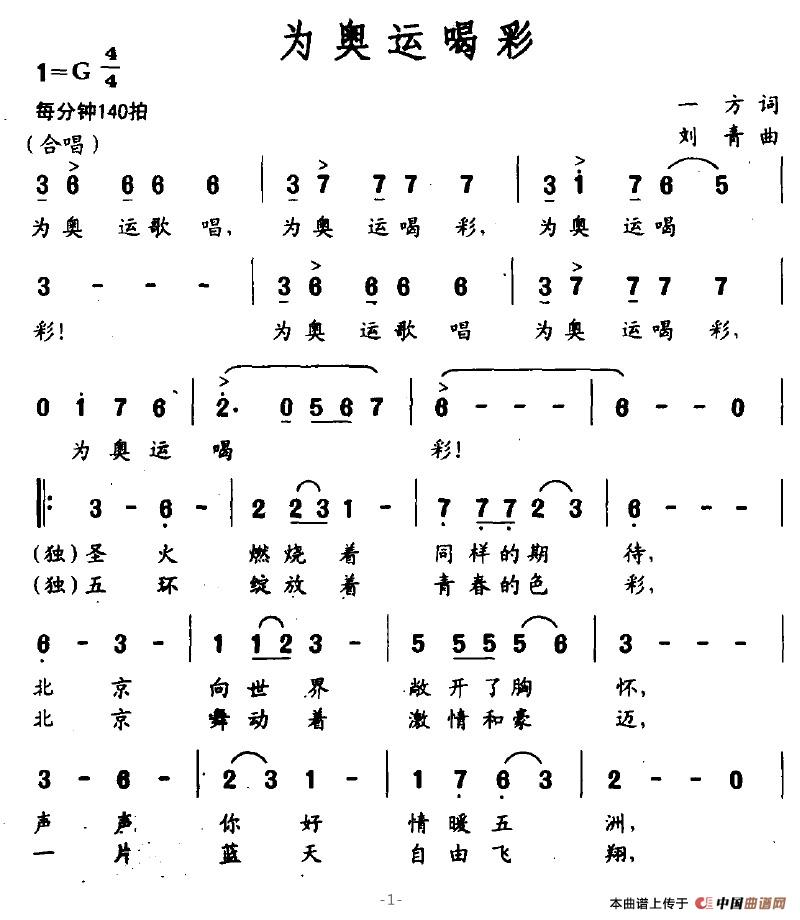 为奥运喝彩
1=G 4/4
每分钟140拍
一方词
(合唱)
刘青曲
3 6 6 6 6 | 3 7 7 7 7 | 3 1 7 6 5 |
为奥运歌唱,为奥运喝彩,为奥运喝
3 - - - | 3 6 6 6 6 | 3 7 7 7 7 |
彩!为奥运歌唱为奥运喝彩,
0 1 7 6 | 2. 0 5 6 7 | 6 - - - | 6 - - 0
为奥运喝彩!
‖: 3 - 6 - | 2 2 3 1 - | 7 7 7 2 3 | 6 - - - |
(独)圣火燃烧着同样的期待,
(独)五环绽放着青春的色彩,
6 - 3 - | 1 1 2 3 - | 5 5 5 5 6 | 3 - - - |
北京向世界敞开了胸怀,
北京舞动着激情和豪迈,
3 - 6 - | 2 3 1 - | 1 7 6 3 | 2 - - 0
声声你好情暖五洲,
一片蓝天自由飞翔,
-1-
本曲谱上传于 中国曲谱网